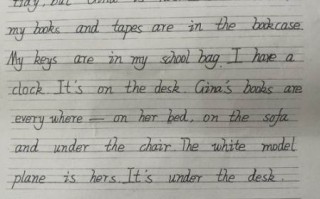 my books and tapes are in the bookcase
My keys are in my school bag. I have a
clock. It's on the desk. Gina's books are
every where — on her bed, on the sofa
and under the chair. The white model
plane is hers. It's under the desk.